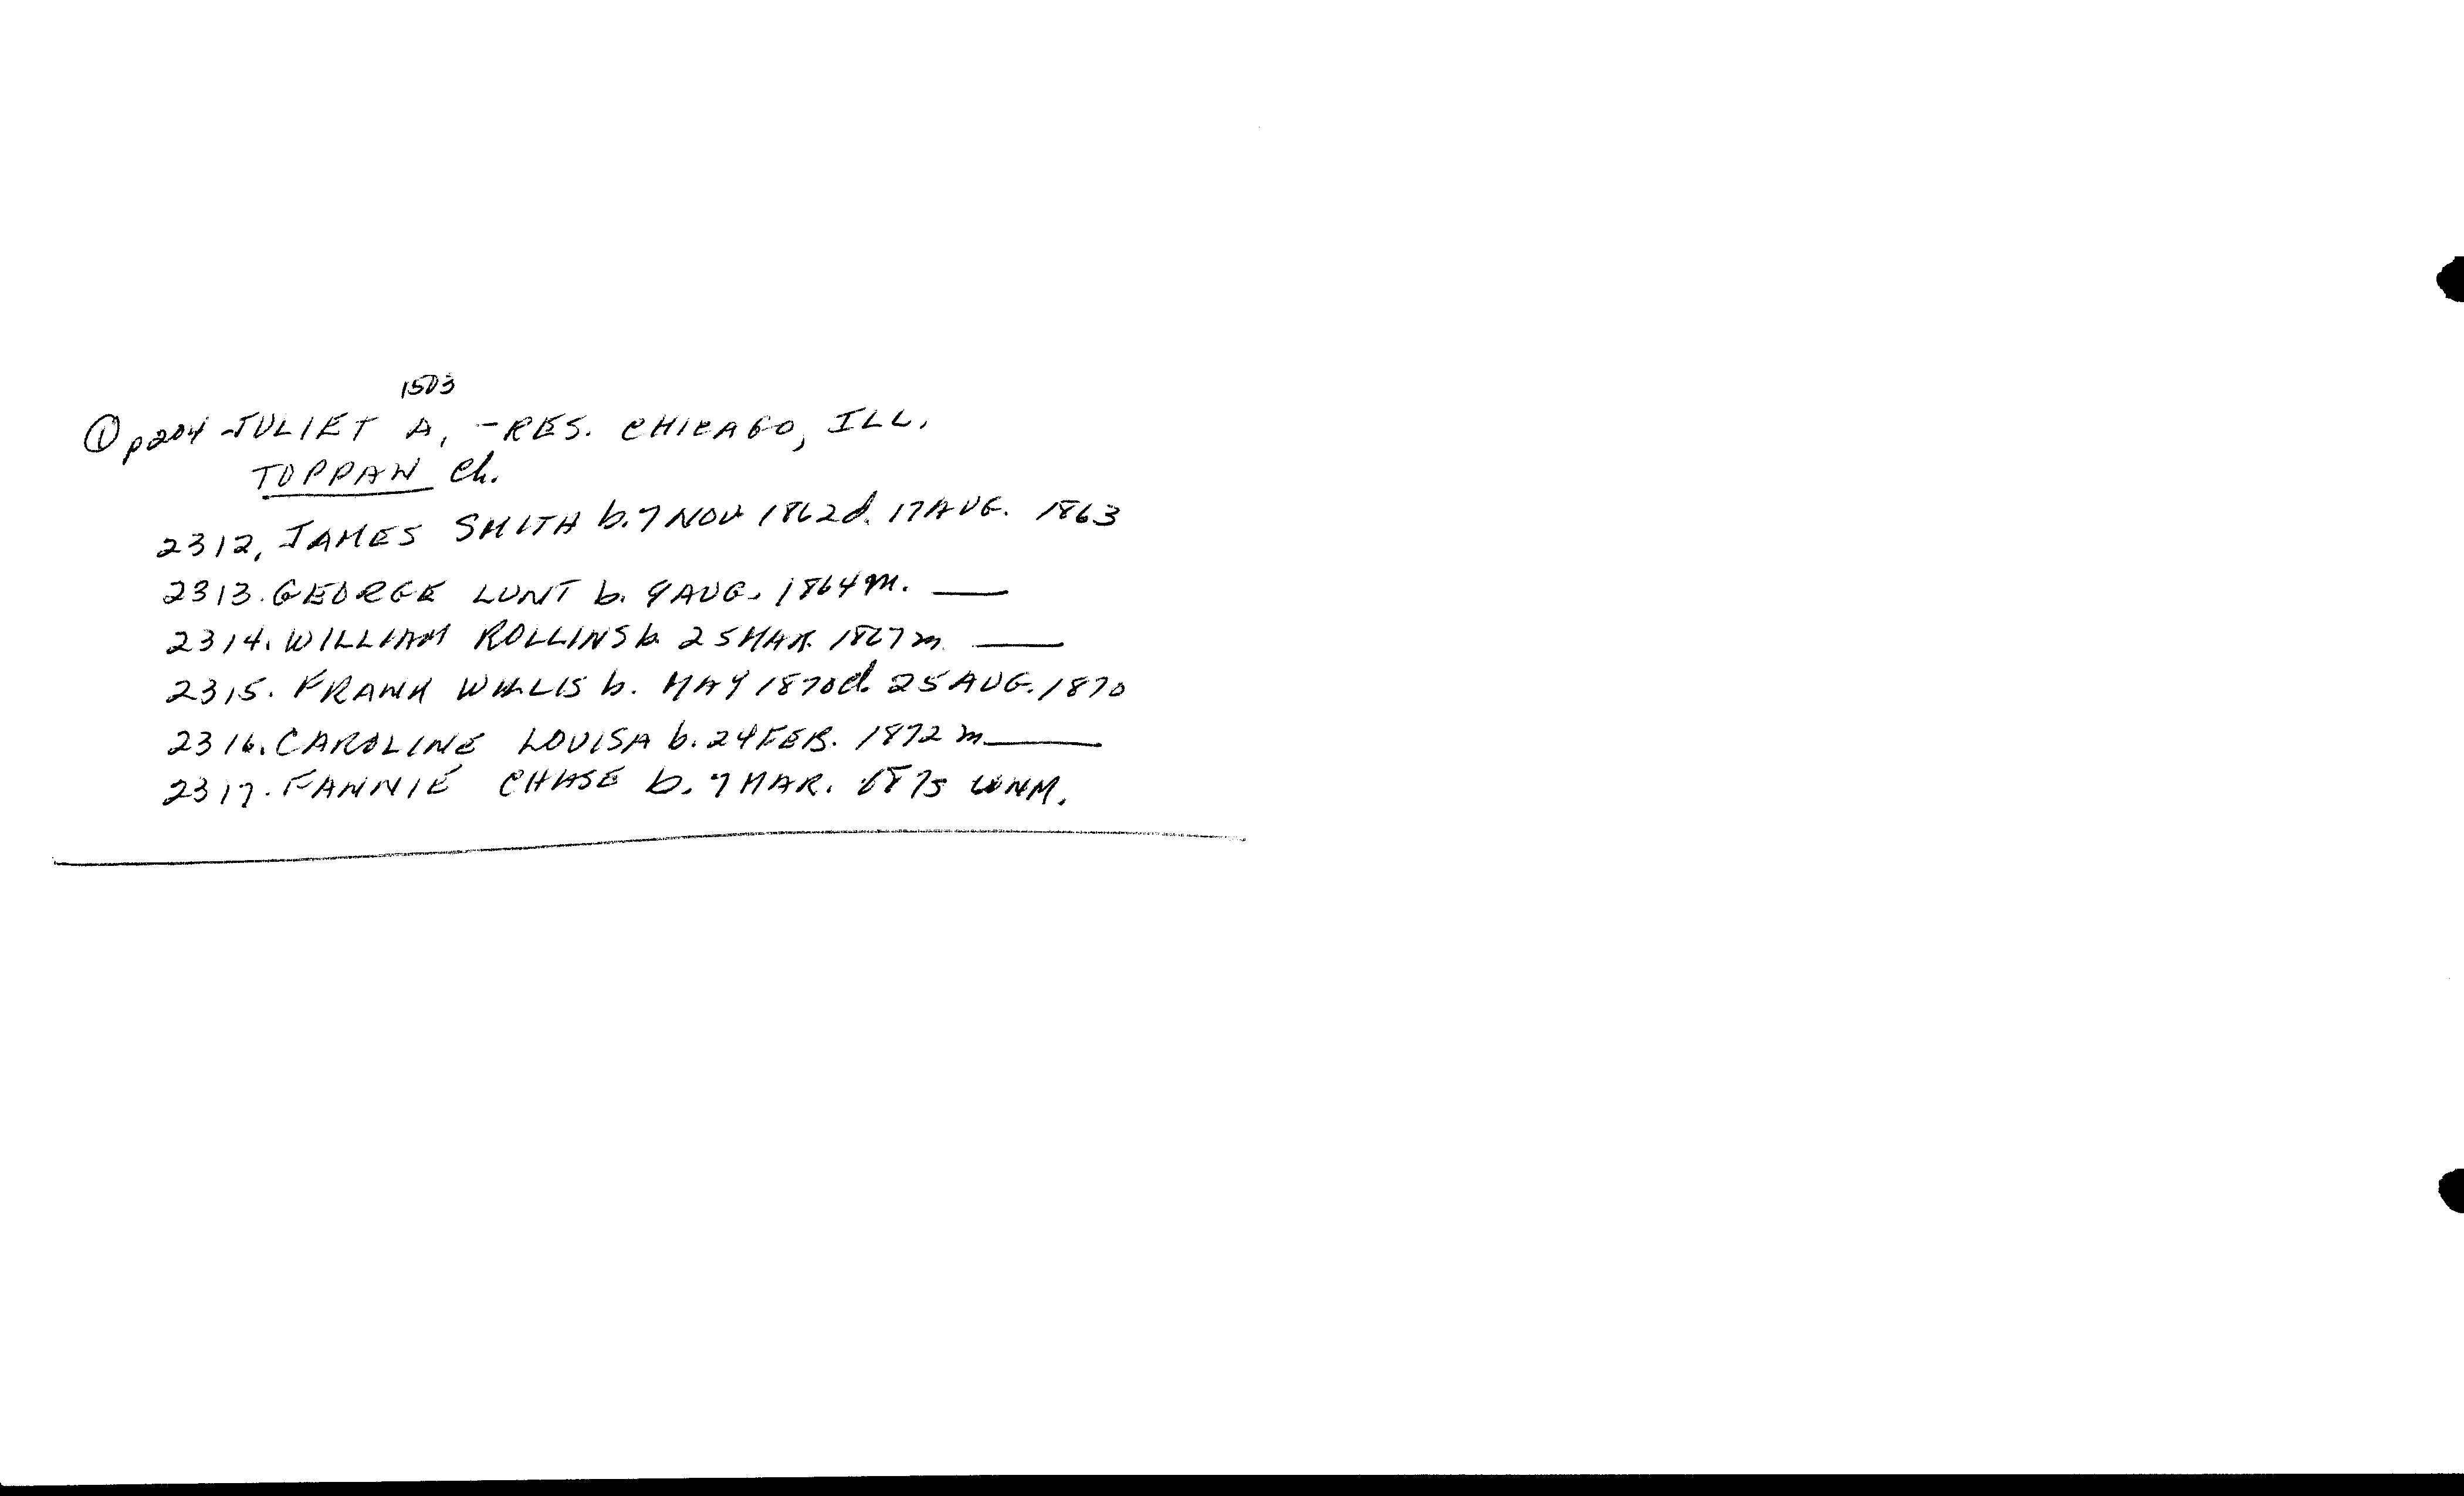 1503
① p204 - JULIET A, - RES. CHICAGO, ILL.
TOPPAN Ch.
2312, JAMES SMITH b. 7 NOV 1862 d. 17 AUG. 1863
2313. GEORGE LUNT b. 9 AUG. 1864 m. ____
2314. WILLIAM ROLLINS b. 25 MAR. 1867 m. ____
2315. FRANK WILLIS b. MAY 1870 d. 25 AUG. 1870
2316. CAROLINE LOUISA b. 24 FEB. 1872 m. ____
2317. FANNIE CHASE b. 7 MAR. 1875 UNM.